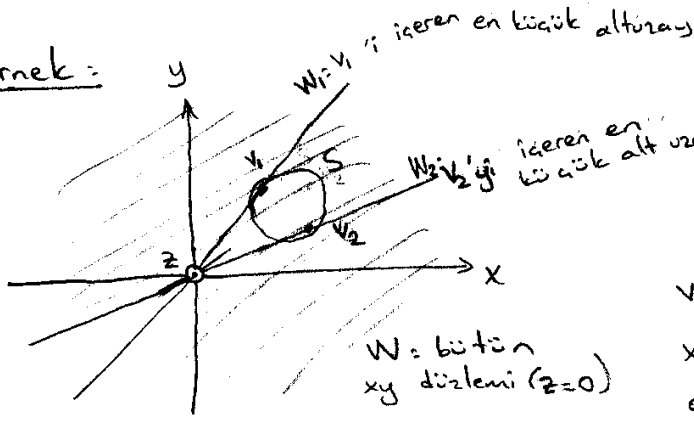 rnek =
y
W₁ = v₁'i içeren en küçük altuzay
v₁
S
W₂ = v₂'yi içeren en
küçük alt uz
v₂
z
x
W = bütün
xy düzlemi (z=0)